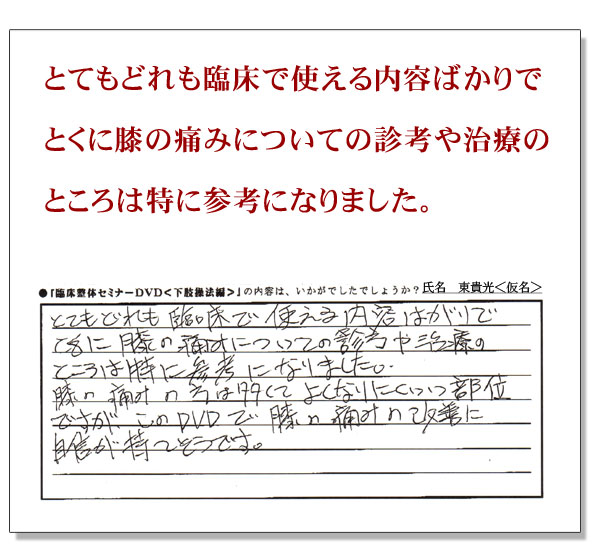 とてもどれも臨床で使える内容ばかりで
とくに膝の痛みについての診考や治療の
ところは特に参考になりました。
●「臨床整体セミナーDVD＜下肢操法編＞」の内容は、いかがでしたでしょうか？氏名　東貴光＜仮名＞
とてもどれも臨床で使える内容ばかりで
とくに膝の痛みについての診考や治療の
ところは特に参考になりました。
膝の痛みの は よくなりにくい 部位
ですが このDVDで 膝の痛みの改善に
自信が持てそうです。